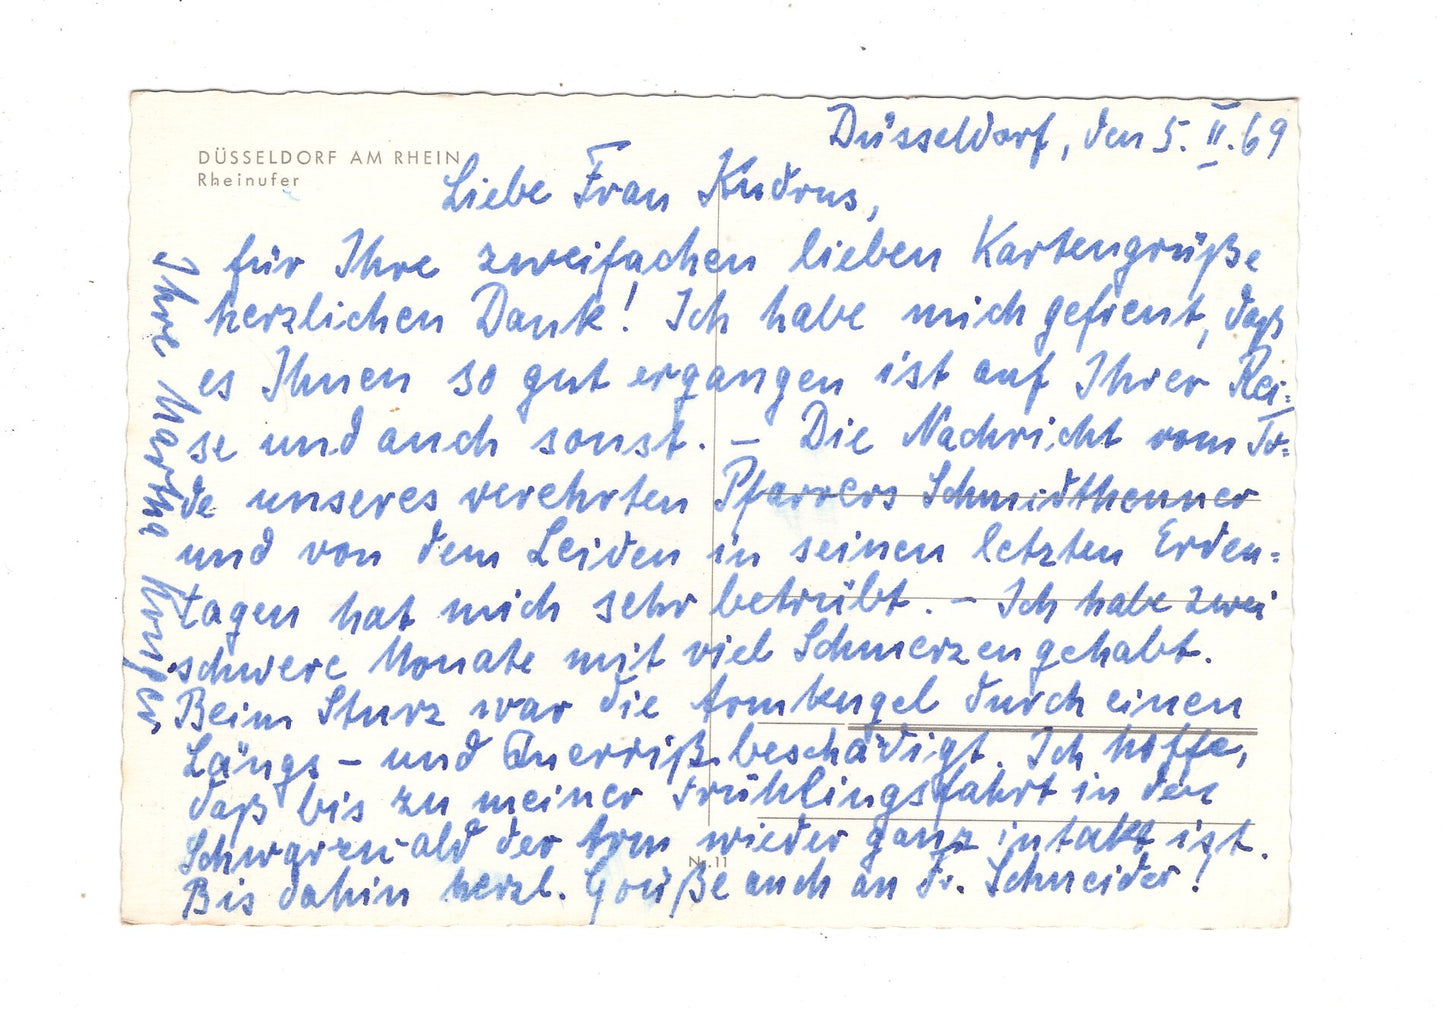 DÜSSELDORF AM RHEIN
Rheinufer
Düsseldorf, den 5. II. 69
Liebe Frau Kudrus,
für Ihre zweifachen lieben Kartengrüße
herzlichen Dank! Ich habe mich gefreut, daß
es Ihnen so gut ergangen ist auf Ihrer Rei=
se und auch sonst. – Die Nachricht vom To=
de unseres verehrten Pfarrers Schmidthenner
und von dem Leiden in seinen letzten Erden=
tagen hat mich sehr betrübt. – Ich habe zwei
schwere Monate mit viel Schmerzen gehabt.
Beim Sturz war die Armkugel durch einen
Längs – und Querriß beschädigt. Ich hoffe,
daß bis zu meiner Frühlingsfahrt in den
Schwarzwald der Arm wieder ganz intakt ist.
Bis dahin herzl. Grüße auch an Fr. Schneider!
Ihre Martha
Nr. 11